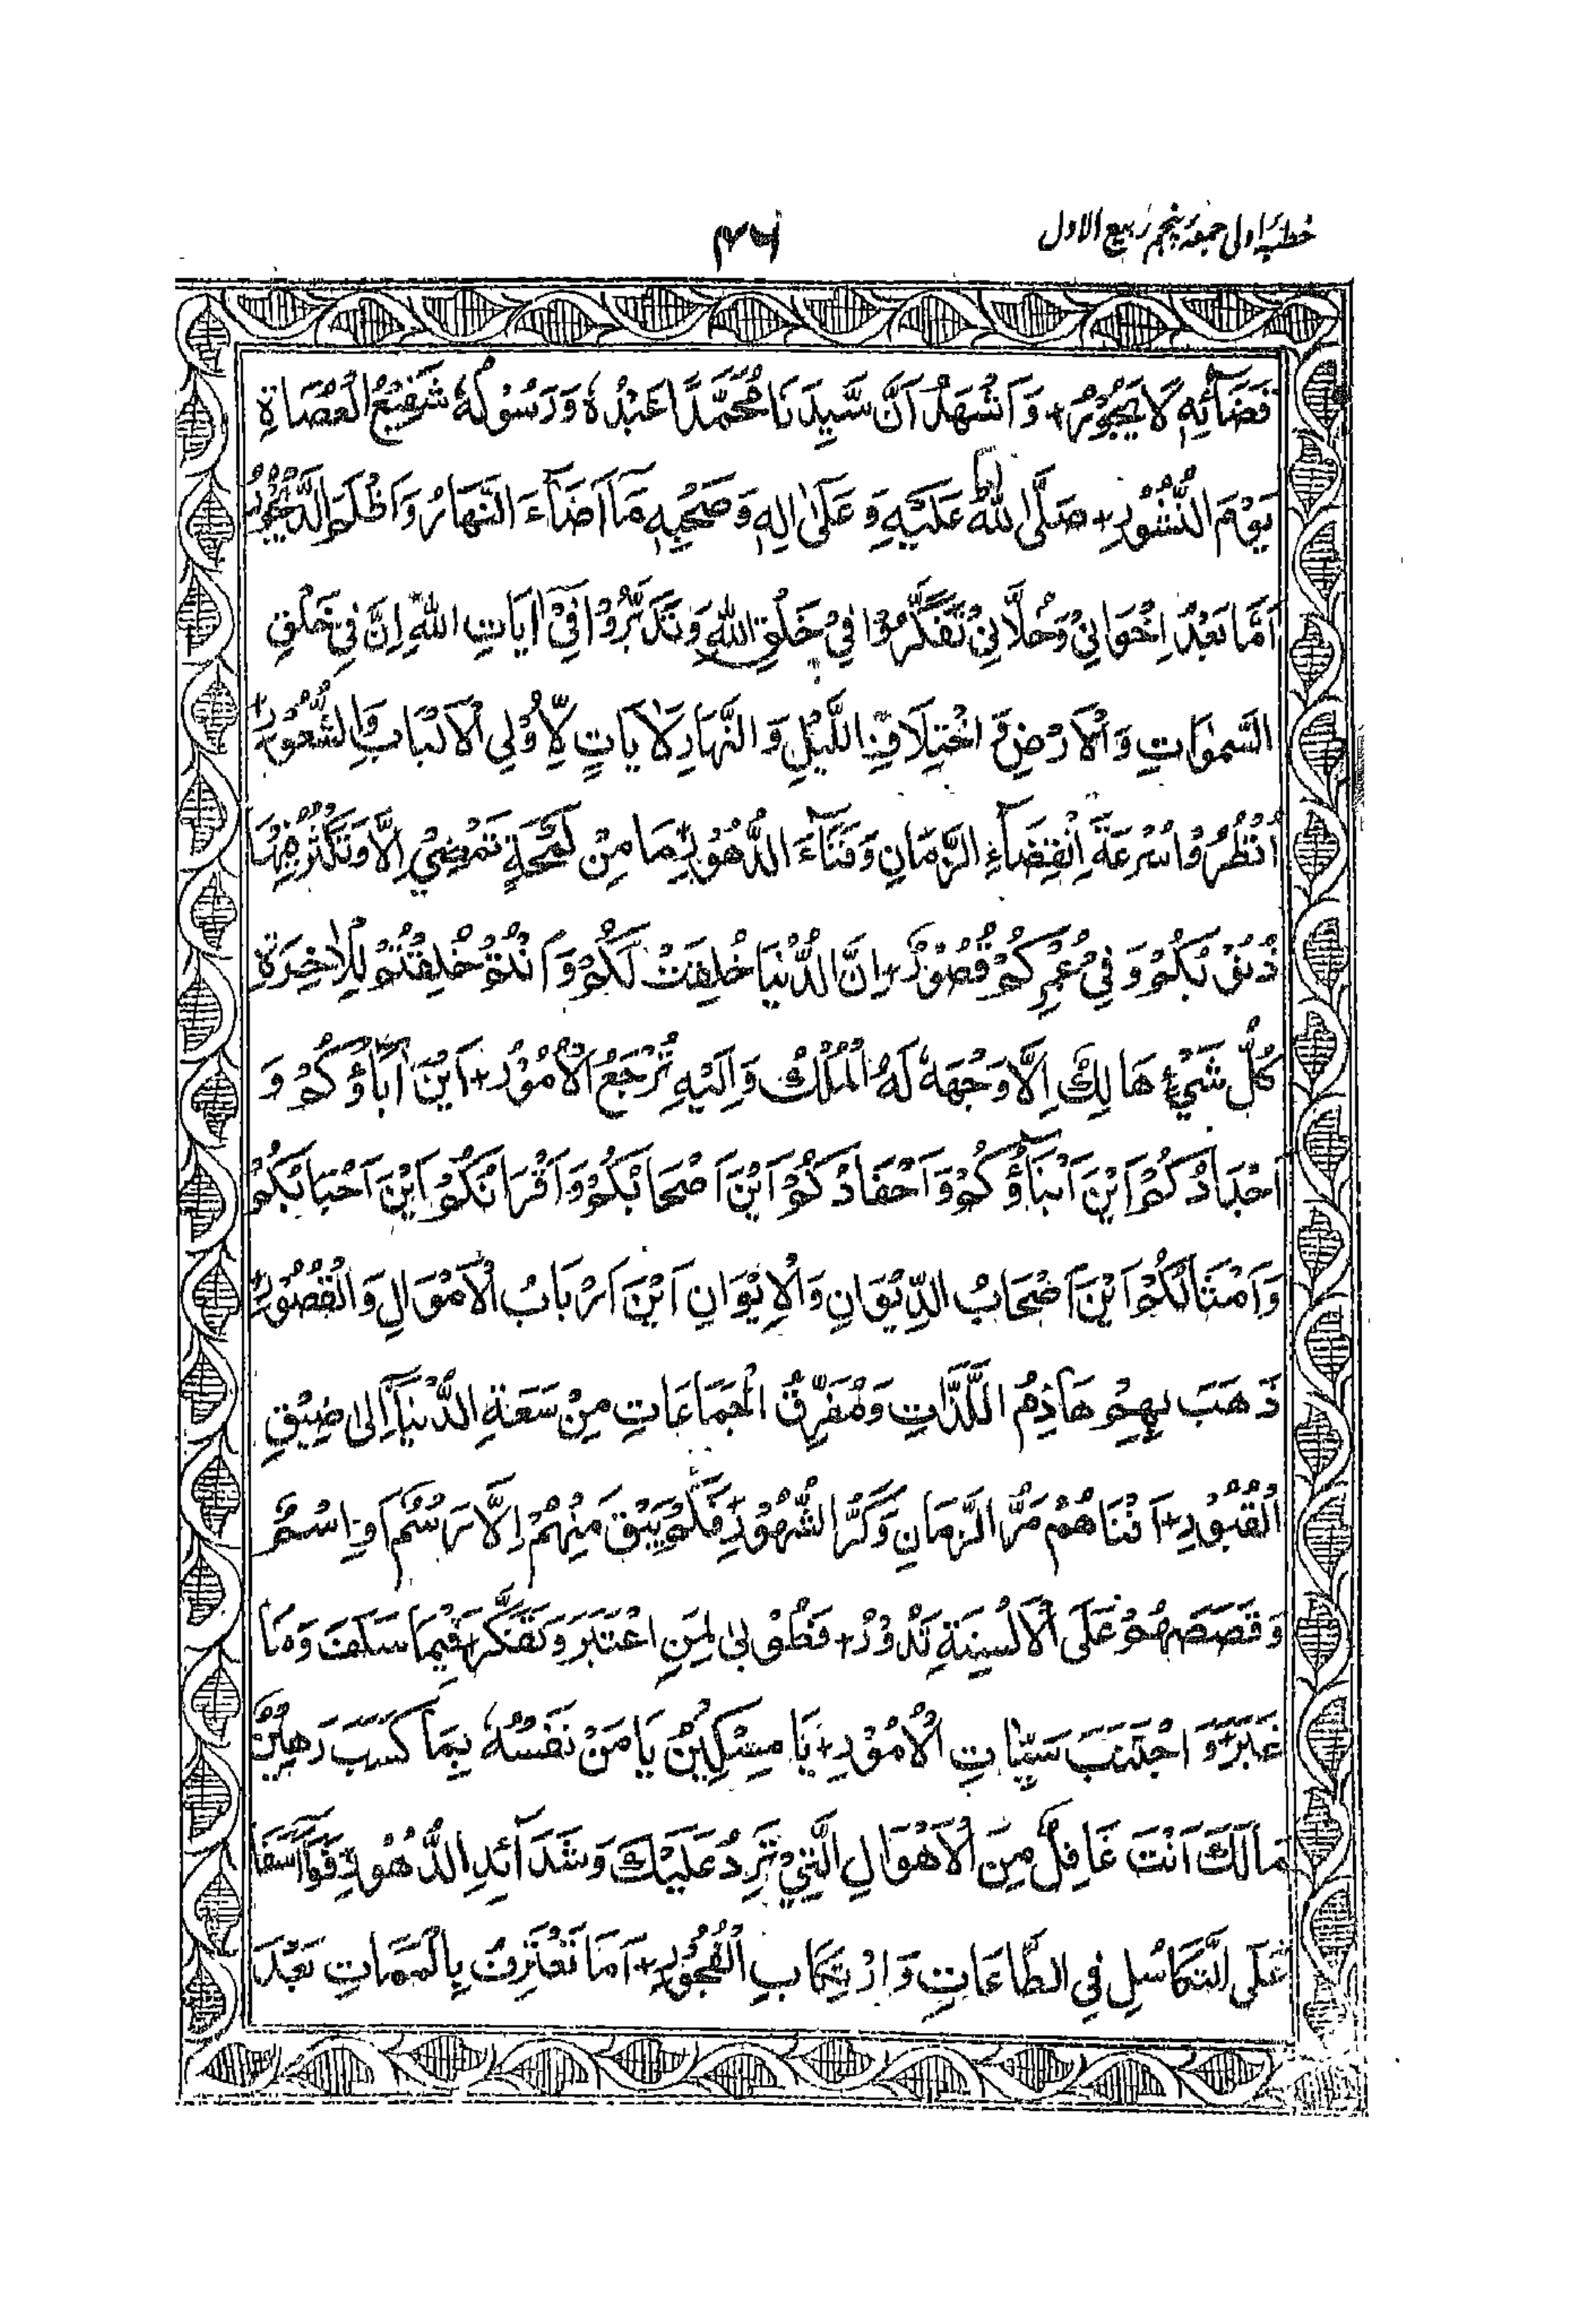 خطبۂ اولی جمعۂ پنجم ربیع الاول
۴۶
قَضَآئِهٖ لَا يَجُوْرُ+ وَاَشْهَدُ اَنَّ سَيِّدَنَا مُحَمَّدًا عَبْدُهٗ وَرَسُوْلُهٗ شَفِيْعُ الْعُصَاةِ
يَوْمَ النُّشُوْرِ+ صَلَّى اللهُ عَلَيْهِ وَعَلٰى اٰلِهٖ وَصَحْبِهٖ مَا اَضَآءَ النَّهَارُ وَاَظْلَمَ الدَّيْجُوْرُ
اَمَّا بَعْدُ اِخْوَانِيْ وَخُلَّانِيْ تَفَكَّرُوْا فِيْ خَلْقِ اللهِ وَتَدَبَّرُوْا فِيْ اٰيَاتِ اللهِ اِنَّ فِيْ خَلْقِ
السَّمٰوَاتِ وَالْاَرْضِ وَاخْتِلَافِ اللَّيْلِ وَالنَّهَارِ لَاٰيَاتٍ لِّاُولِي الْاَلْبَابِ وَالشُّعُوْرِ+
اُنْظُرُوْا سُرْعَةَ اِنْقِضَآءِ الزَّمَانِ وَفَنَآءَ الدُّهُوْرِ+ مَا مِنْ لَمْحَةٍ تَمْضِيْ اِلَّا وَتَكْثُرُ فِيْهَا
ذُنُوْبُكُمْ وَفِيْ عُمُرِكُمْ قُصُوْرٌ+ اِنَّ الدُّنْيَا خُلِقَتْ لَكُمْ وَاَنْتُمْ خُلِقْتُمْ لِلْاٰخِرَةِ
كُلُّ شَيْءٍ هَالِكٌ اِلَّا وَجْهَهٗ لَهُ الْمُلْكُ وَاِلَيْهِ تُرْجَعُ الْاُمُوْرُ+ اَيْنَ اٰبَاؤُكُمْ وَ
اَجْدَادُكُمْ اَيْنَ اَبْنَاؤُكُمْ وَاَحْفَادُكُمْ اَيْنَ اَصْحَابُكُمْ وَاَقْرَانُكُمْ اَيْنَ اَحْبَابُكُمْ
وَاَمْثَالُكُمْ اَيْنَ اَصْحَابُ الدِّيْوَانِ وَالْاِيْوَانِ اَيْنَ اَرْبَابُ الْاَمْوَالِ وَالْقُصُوْرِ+
ذَهَبَ بِهِمْ هَاذِمُ اللَّذَّاتِ وَمُفَرِّقُ الْجَمَاعَاتِ مِنْ سَعَةِ الدُّنْيَا اِلٰى ضِيْقِ
الْقُبُوْرِ+ اَفْنَاهُمْ مَرُّ الزَّمَانِ وَكَرُّ الشُّهُوْرِ+ فَلَمْ يَبْقَ مِنْهُمْ اِلَّا رَسْمٌ اَوِ اسْمٌ
وَقَصَصُهُمْ عَلَى الْاَلْسِنَةِ تَدُوْرُ+ فَطُوْبٰى لِمَنِ اعْتَبَرَ وَتَفَكَّرَ فِيْمَا سَلَفَ وَمَا
غَبَرَ+ وَاجْتَنَبَ سَيِّئَاتِ الْاُمُوْرِ+ يَا مِسْكِيْنُ يَا مَنْ نَفْسُهٗ بِمَا كَسَبَ رَهِيْنٌ
مَا لَكَ اَنْتَ غَافِلٌ مِنَ الْاَهْوَالِ الَّتِيْ تَرِدُ عَلَيْكَ وَشَدَآئِدِ الدُّهُوْرِ+ فَوَا اَسَفَا
عَلَى التَّكَاسُلِ فِي الطَّاعَاتِ وَارْتِكَابِ الْفُجُوْرِ+ اَمَا تَعْتَرِفُ بِالْمَمَاتِ بَعْدَ